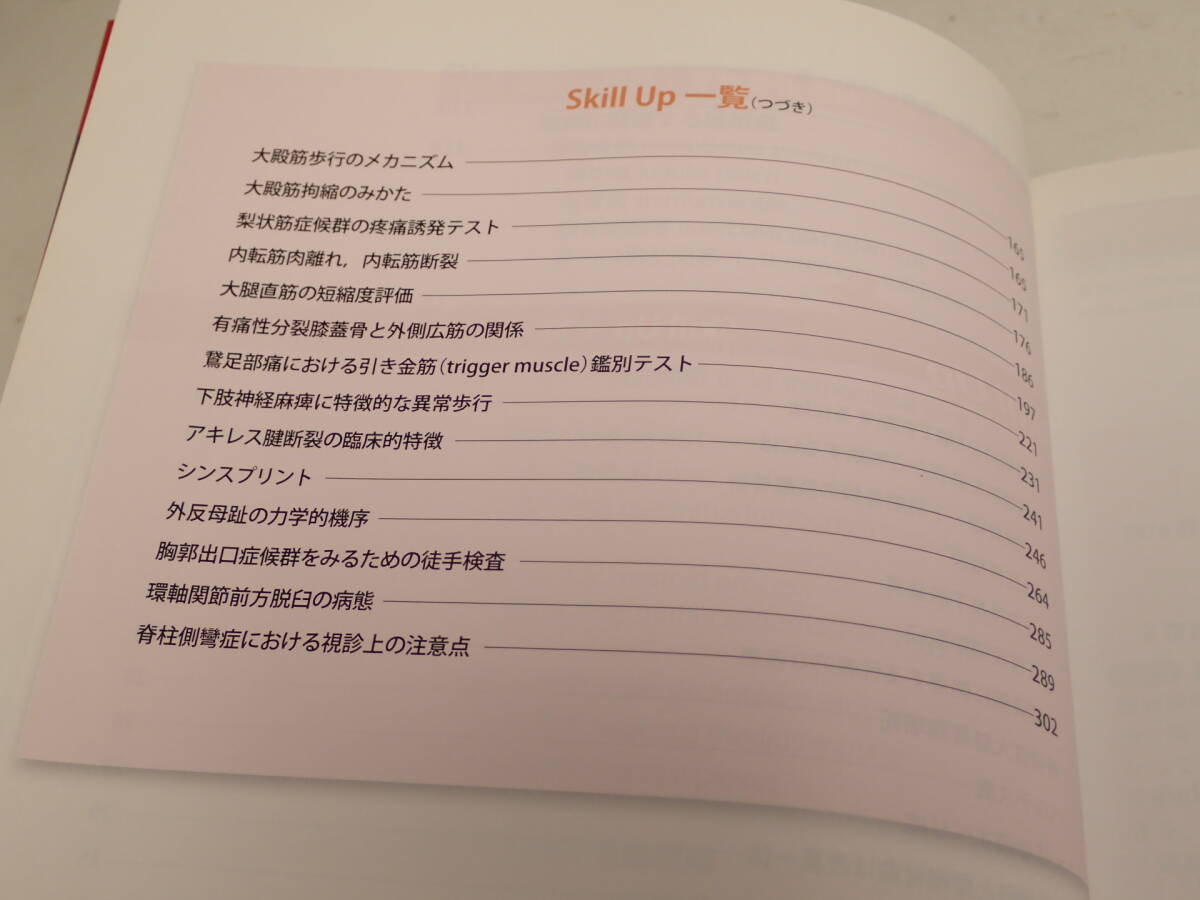 Skill Up 一覧(つづき)
大殿筋歩行のメカニズム 165
大殿筋拘縮のみかた 165
梨状筋症候群の疼痛誘発テスト 171
内転筋肉離れ，内転筋断裂 176
大腿直筋の短縮度評価 186
有痛性分裂膝蓋骨と外側広筋の関係 197
鵞足部痛における引き金筋(trigger muscle)鑑別テスト 221
下肢神経麻痺に特徴的な異常歩行 231
アキレス腱断裂の臨床的特徴 241
シンスプリント 246
外反母趾の力学的機序 264
胸郭出口症候群をみるための徒手検査 285
環軸関節前方脱臼の病態 289
脊柱側彎症における視診上の注意点 302